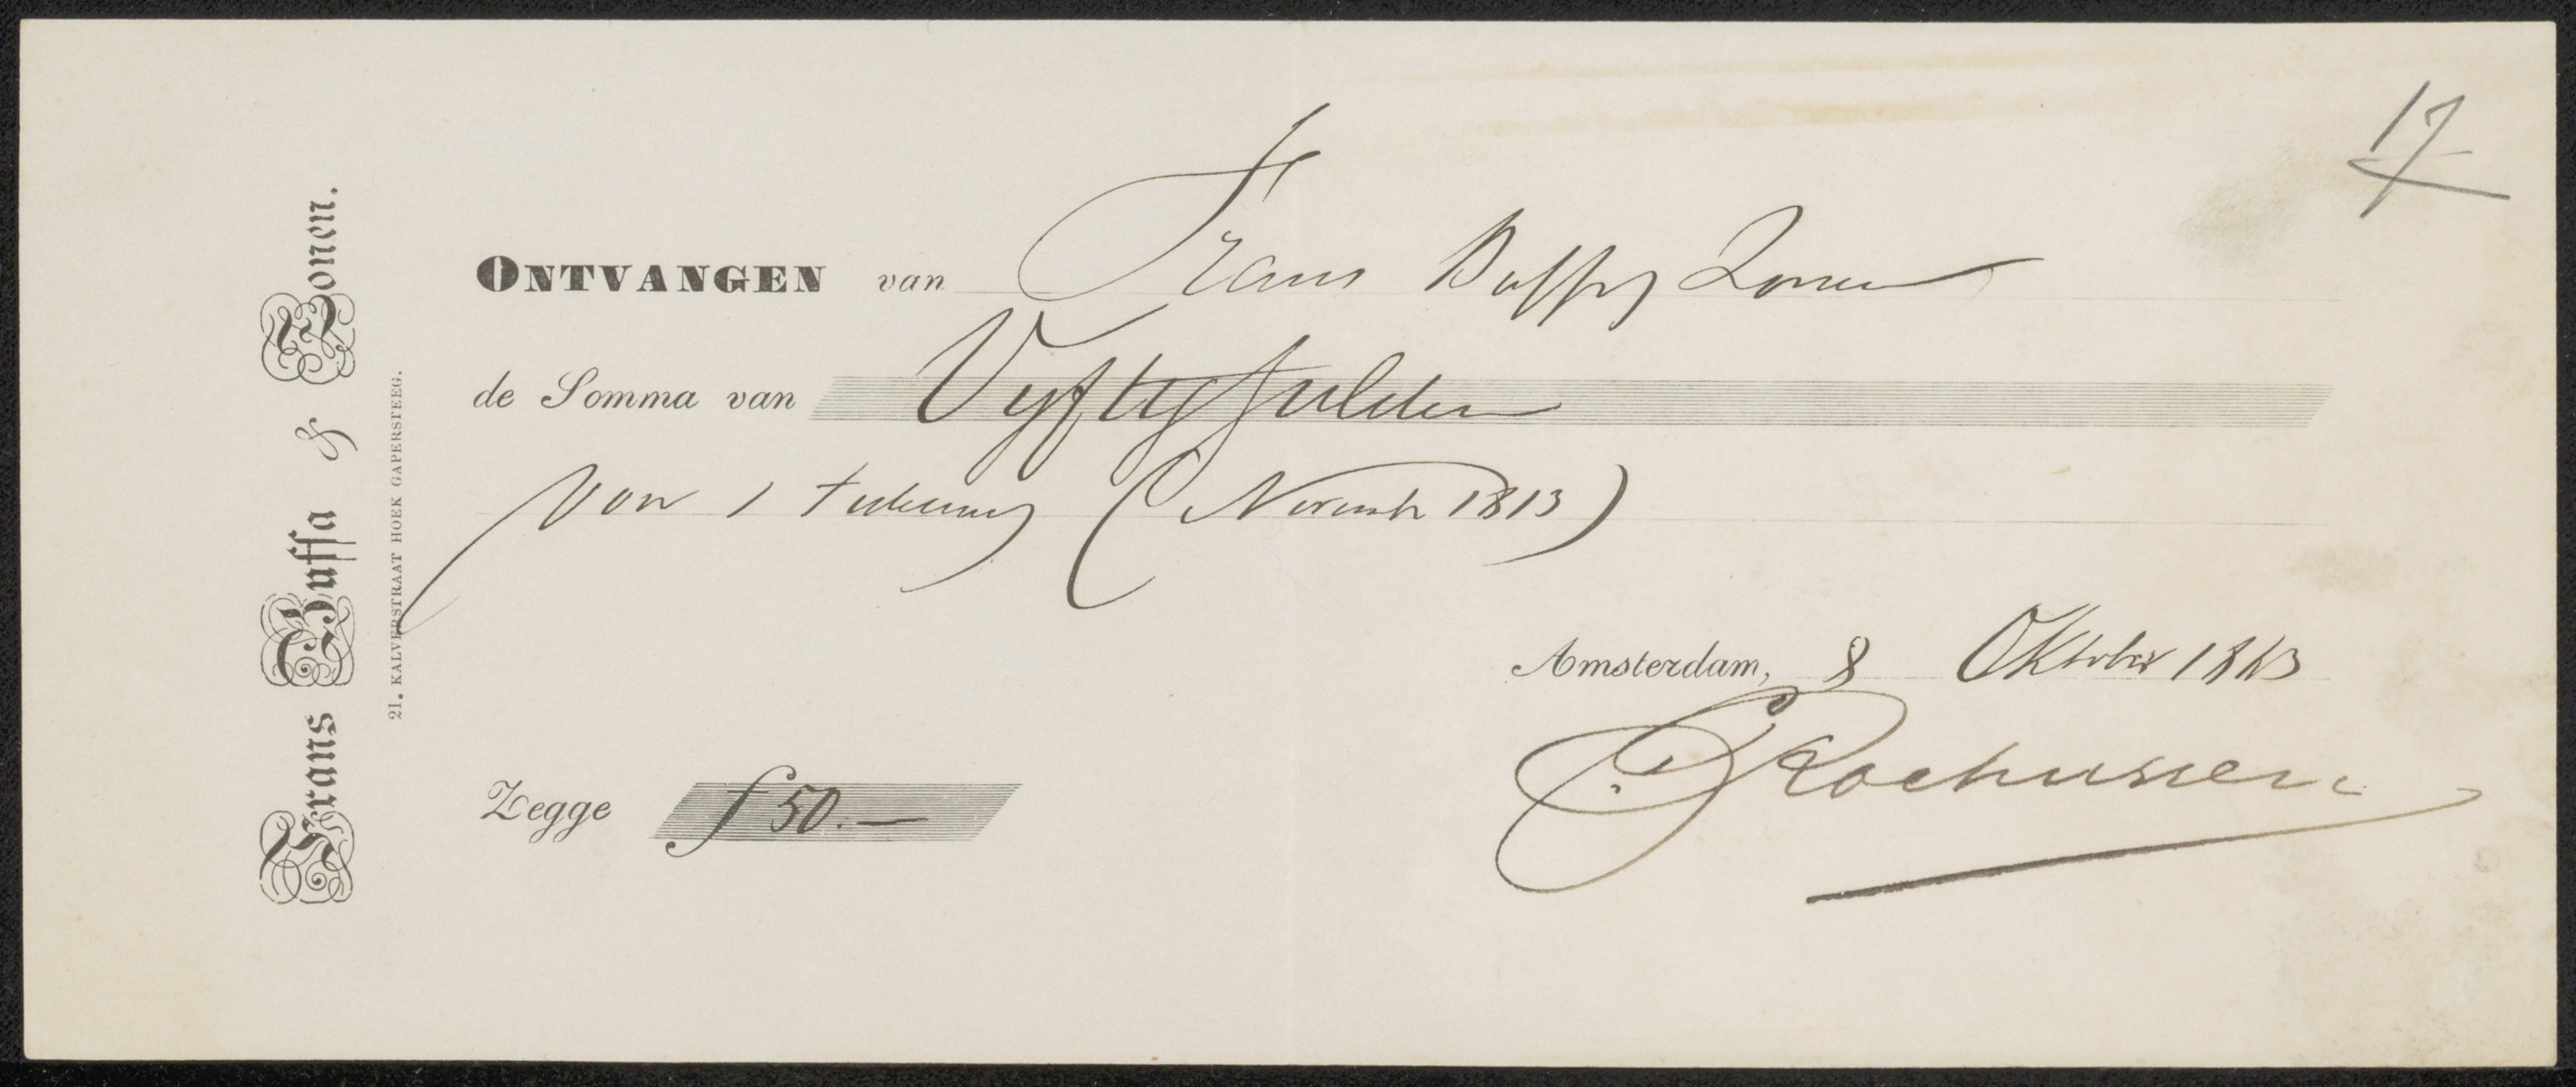 Frans Buffa & Zonen.
21. KALVERSTRAAT HOEK GAPERSTEEG.
17
ONTVANGEN van Frans Buffa Zonen
de Somma van Vyftig gulden
Voor 1 teekening (November 1813)
Amsterdam, 8 Oktober 1863
Zegge f 50.—
C Rochussen